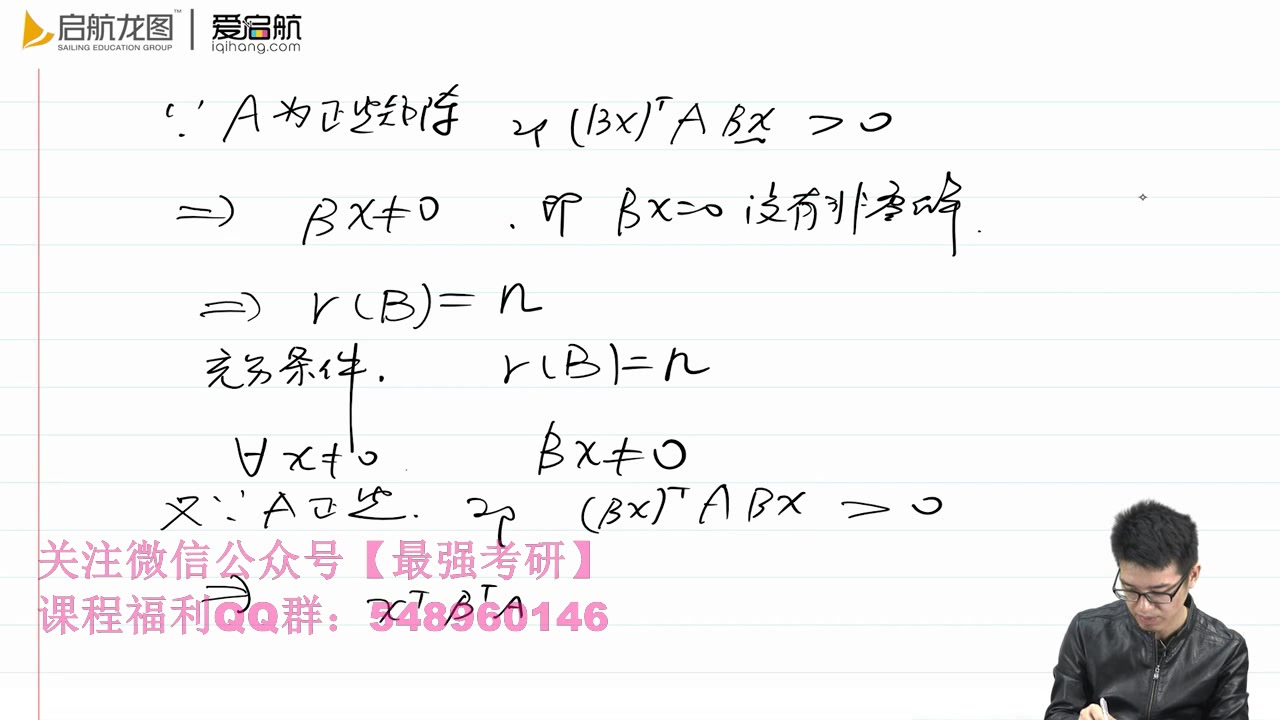 启航龙图™ | 爱启航
SAILING EDUCATION GROUP iqihang.com
∵ A为正定矩阵 即 (Bx)ᵀ A Bx > 0
⇒ Bx≠0 . 即 Bx=0 没有非零解.
⇒ r(B)= n
充分条件. r(B)=n
∀ x≠0 Bx≠0
又∵ A正定. 即 (Bx)ᵀ A Bx > 0
关注微信公众号【最强考研】
⇒ xᵀ Bᵀ A
课程福利QQ群：548960146